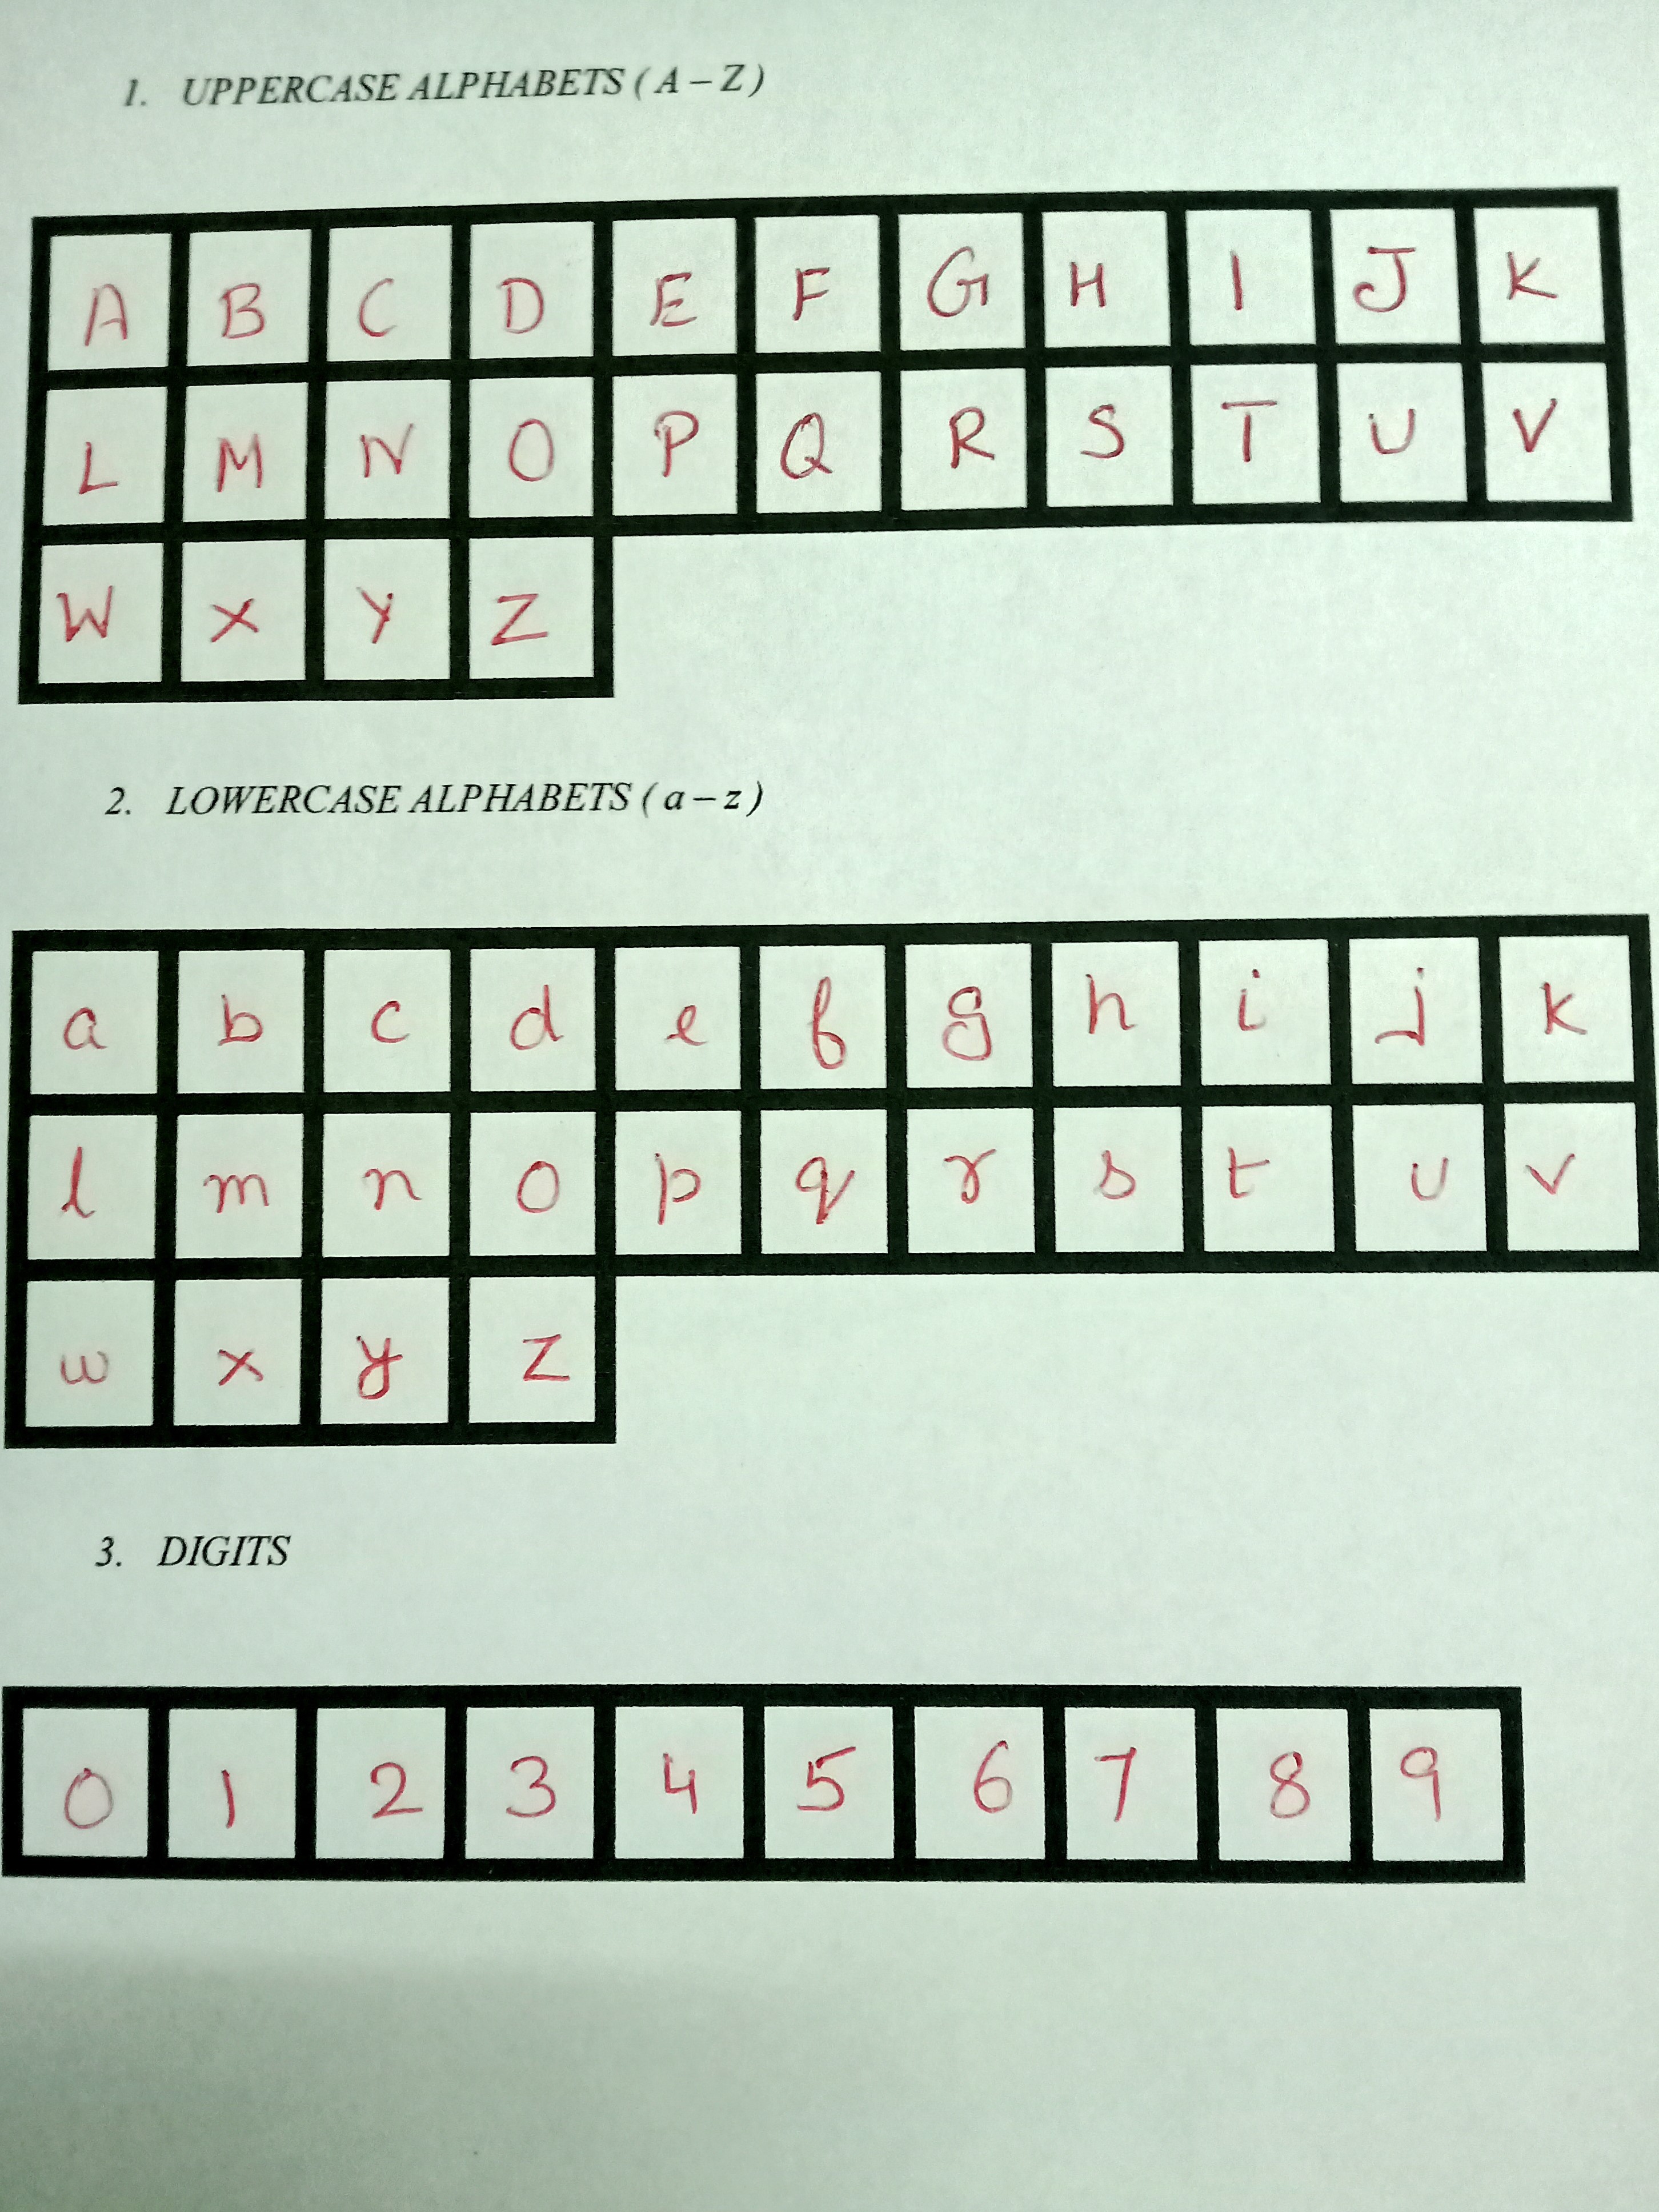 1. UPPERCASE ALPHABETS ( A – Z )
A B C D E F G H I J K
L M N O P Q R S T U V
W X Y Z
2. LOWERCASE ALPHABETS ( a – z )
a b c d e f g h i j k
l m n o p q r s t u v
w x y z
3. DIGITS
0 1 2 3 4 5 6 7 8 9